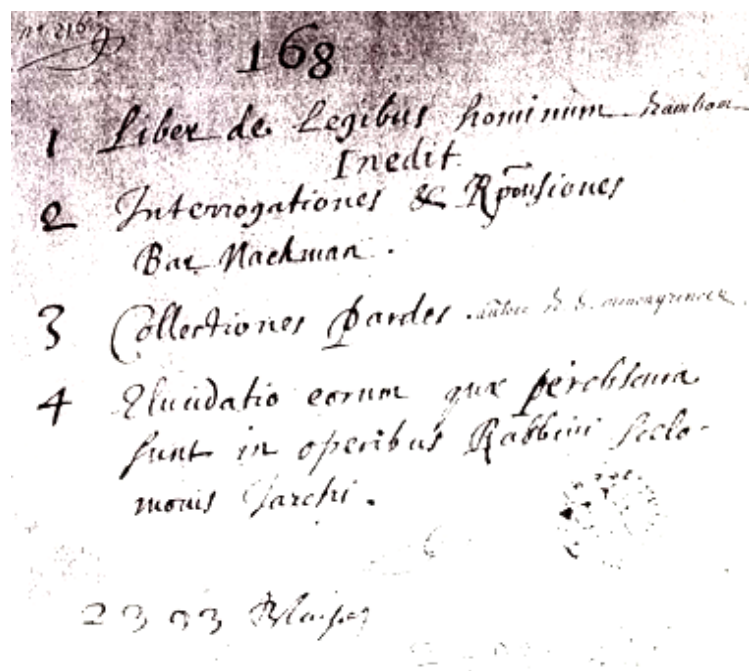 no. 216
168
1 Liber de Legibus hominum Ramban
Inedit.
2 Interrogationes & Rponsiones
Bar Nachman.
3 Collectiones Pardes.
4 Elucidatio eorum quæ perobscura
sunt in operibus Rabbini Scelo-
monis Jarchi.